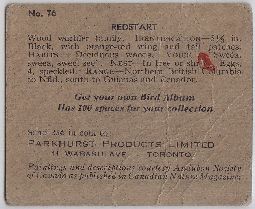 No. 76
REDSTART
Wood warbler family. IDENTIFICATION—5½ in.
Black, with orange-red wing and tail patches.
HABITS—Deciduous woods. VOICE—"Sweea,
sweea, sweea, swee". NEST—In tree or shrub. Eggs,
4, speckled. RANGE—Northern British Columbia
to Nfld., south to Carolinas and Ecuador.
Get your own Bird Album
Has 100 spaces for your collection
Send 25¢ in coin to
PARKHURST PRODUCTS LIMITED
11 WABASH AVE. TORONTO.
Paintings and descriptions courtesy Audubon Society
of Canada as published in Canadian Nature Magazine.